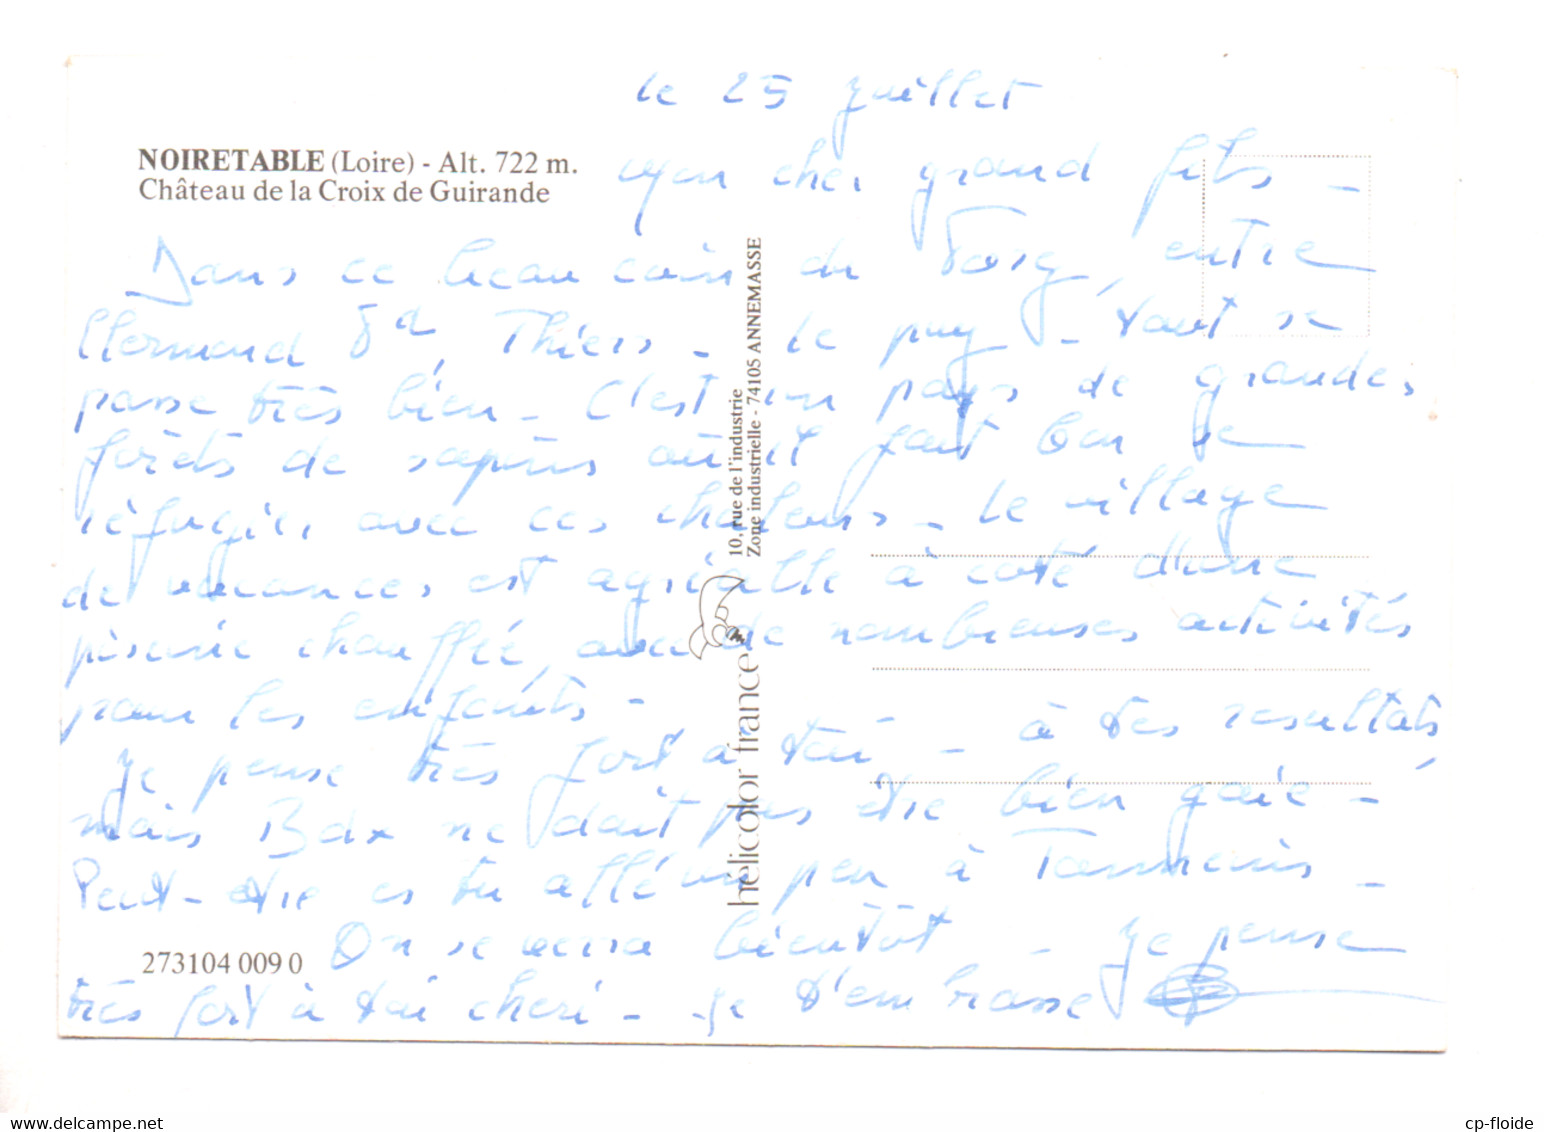 le 25 juillet
NOIRETABLE (Loire) - Alt. 722 m.
Château de la Croix de Guirande
Mon cher grand fils -
Dans ce beau coin du Forez, entre
Clermond Fd, Thiers - le puy - tout se
passe très bien - C'est un pays de grandes
forêts de sapins où il fait bon se
réfugier avec ces chaleurs - Le village
de vacances est agréable à coté d'une
piscine chauffée, avec de nombreuses activités
pour les enfants -
Je pense très fort à toi - à tes resultats
mais Bdx ne doit pas être bien gaie -
Peut-etre es tu allé un peu à Tonneins -
On se verra bientôt - Je pense
très fort à toi cheri - Je t'embrasse
10, rue de l'industrie
Zone industrielle - 74105 ANNEMASSE
helicolor france
273104 009 0
cp-floide